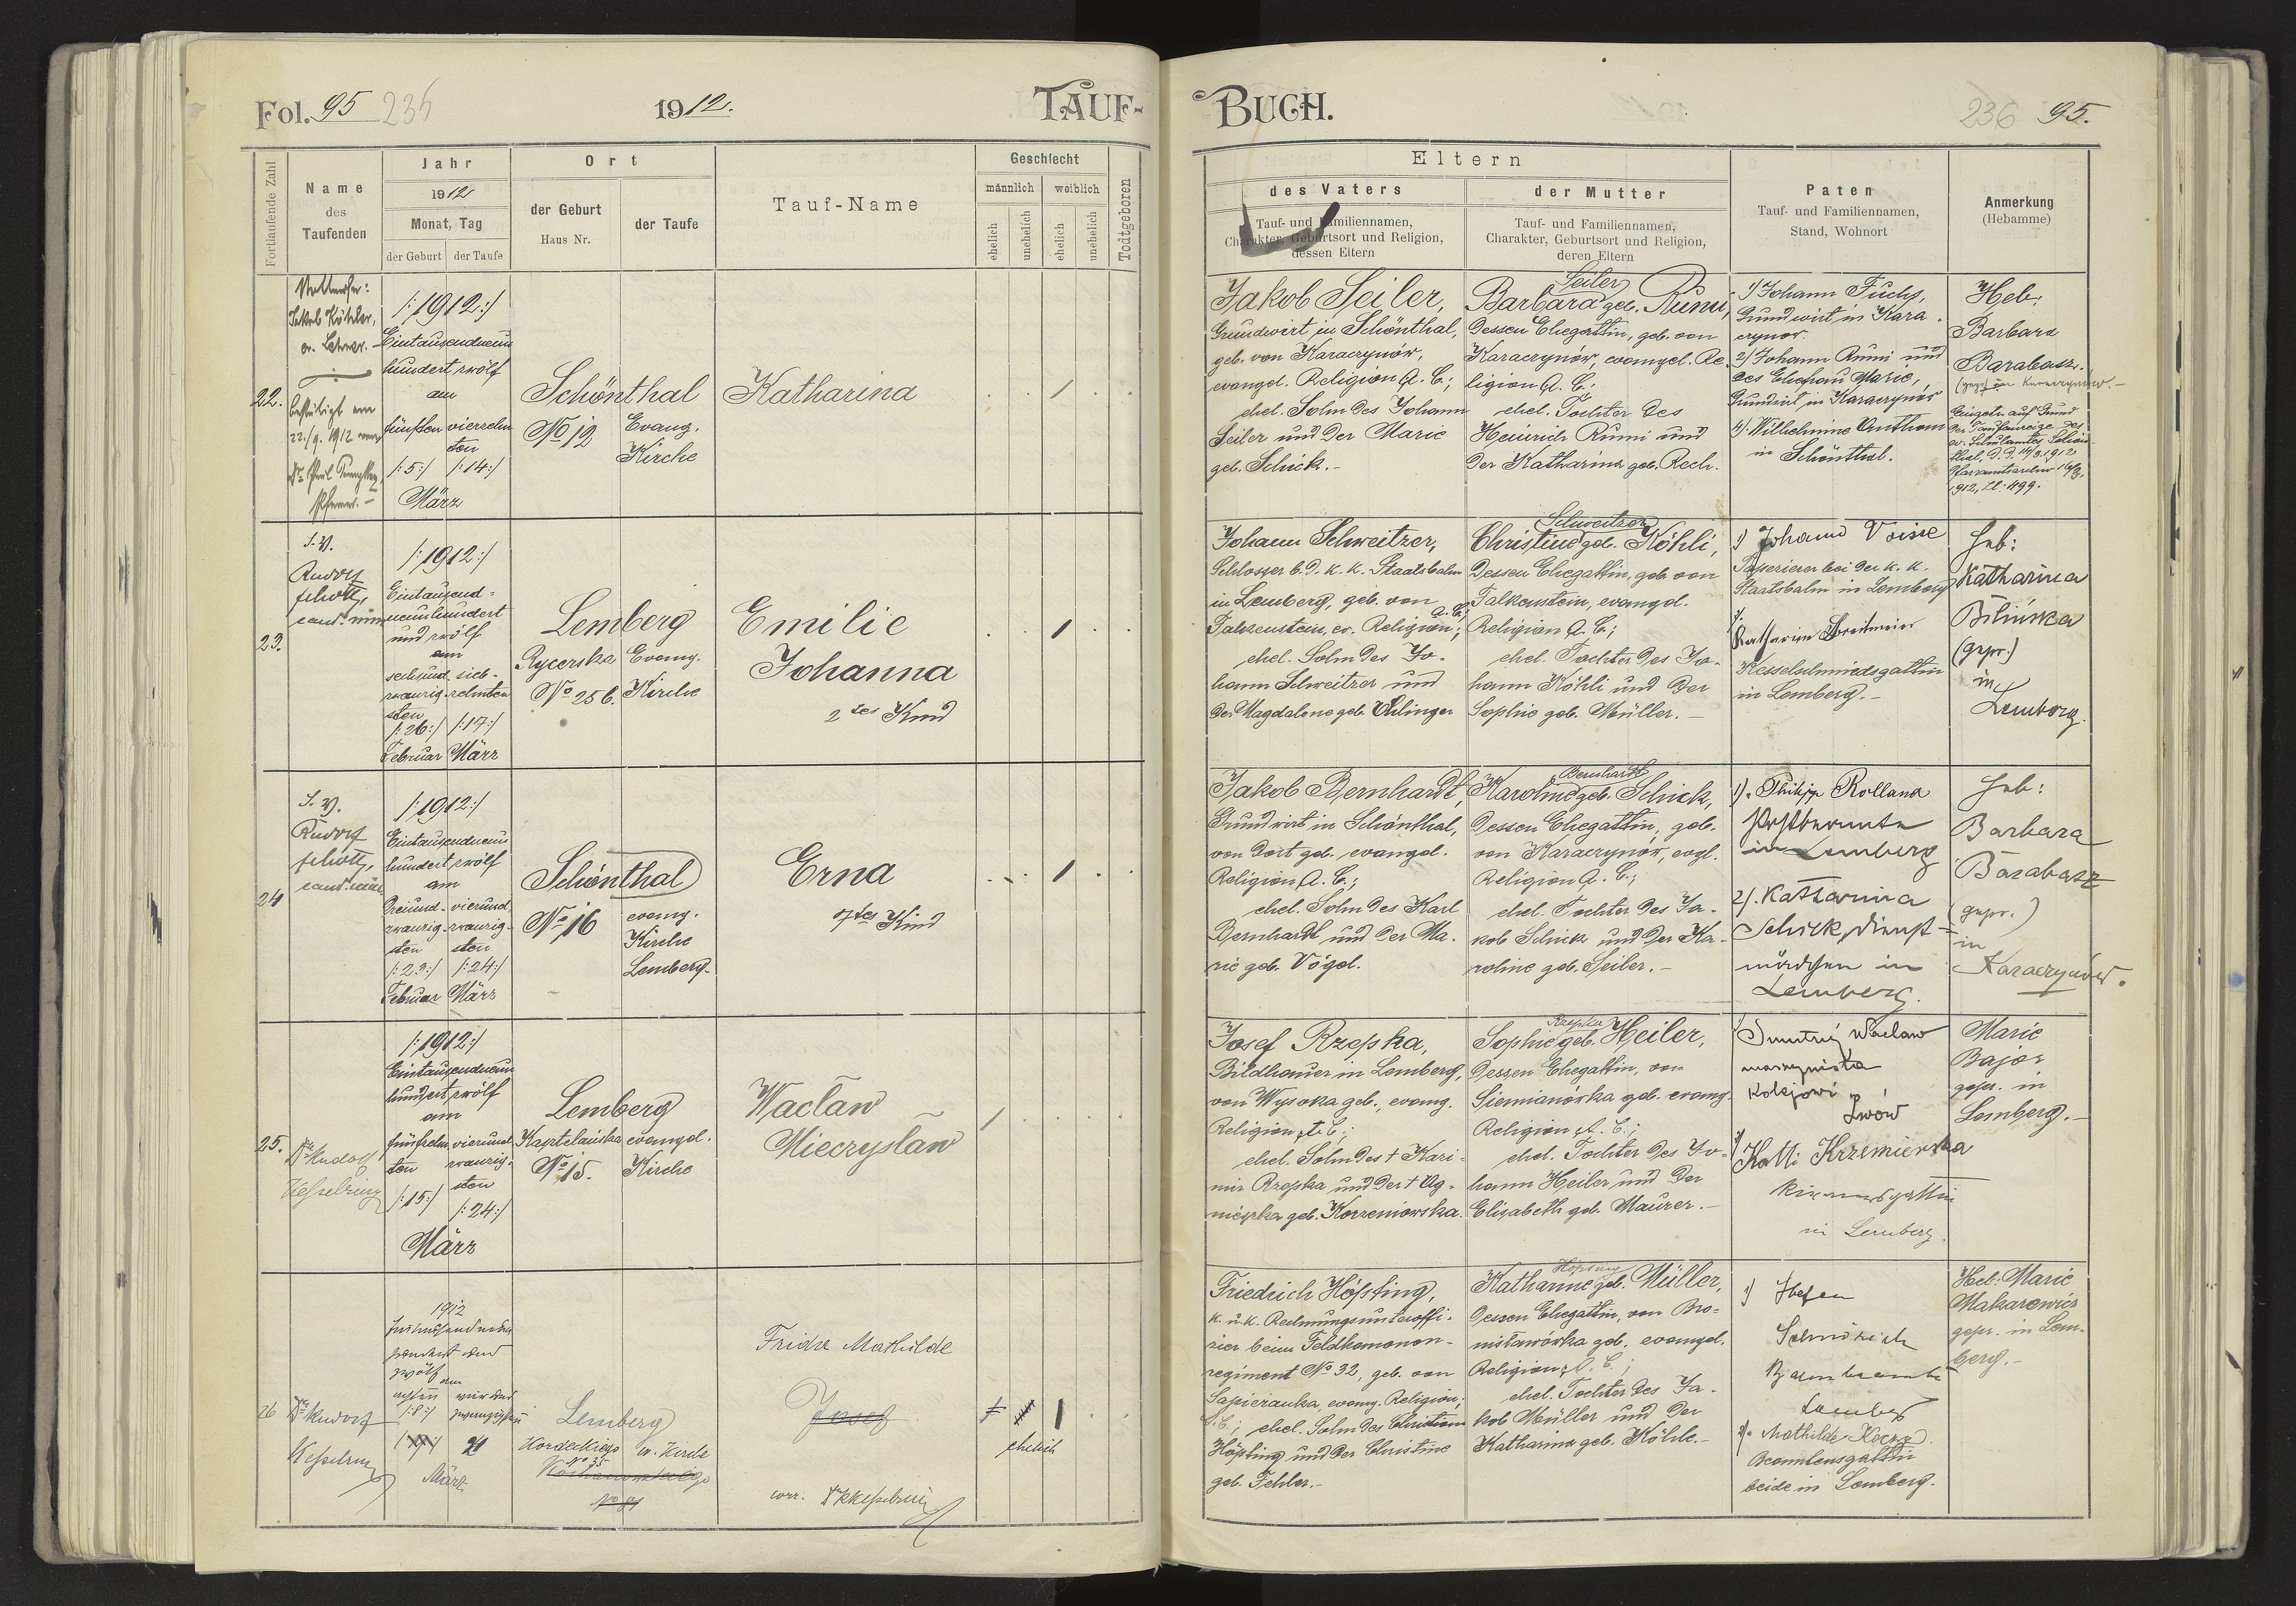 Fol. 95 235
1912.
TAUF-
Fortlaufende Zahl
Name
des
Taufenden
Jahr
1912
Monat, Tag
der Geburt
der Taufe
Ort
der Geburt
Haus Nr.
der Taufe
Tauf-Name
Geschlecht
männlich
weiblich
ehelich
unehelich
ehelich
unehelich
Todtgeboren
22.
Jakob Köhler,
ev. Lehrer.
bestätigt am
22./9. 1912
/:1912:/
Eintausendneun
hundert zwölf
am
fünften vierzehn
ten
/:5:/ /:14:/
März
Schönthal
No 12
Evang.
Kirche
Katharina
23.
I. V.
Rudolf
/:1912:/
Eintausend=
neunhundert
und zwölf
am
sechsund- sieb-
zwanzig- zehnten
sten
/:26:/ /:17:/
Februar März
Lemberg
Rycerska Evang.
No 256. Kirche
Emilie
Johanna
2tes Kind
24
I. V.
Rudolf
/:1912:/
Eintausendneun
hundert zwölf
am
dreiund- vierund
zwanzig- zwanzig-
sten sten
/:23:/ /:24:/
Februar März
Schönthal
No 16
evang.
Kirche
Lemberg.
Erna
7tes Kind
25.
Dr Rudolf
Kesselring
/:1912:/
Eintausendneun
hundert zwölf
am
fünfzehn vierund
ten zwanzig-
sten
/:15:/ /:24:/
März
Lemberg
evangel.
No 15. Kirche
Wacław
Mieczysław
26
Dr Rudolf
Kesselring
1912
zwölf
am
/:8:/
24
März
Lemberg
Kordeckiego ev. Kirche
No 35
Fridze Mathilde
Josef
ehelich
corr. Dr RKesselring
BUCH.
236 95.
Eltern
des Vaters
Tauf- und Familiennamen,
Charakter, Geburtsort und Religion,
dessen Eltern
der Mutter
Tauf- und Familiennamen,
Charakter, Geburtsort und Religion,
deren Eltern
Paten
Tauf- und Familiennamen,
Stand, Wohnort
Anmerkung
(Hebamme)
Jakob Seiler,
Grundwirt in Schönthal,
geb. von Karaczynów,
evangel. Religion A. C.;
ehel. Sohn des Johann
Seiler und der Marie
geb. Schick.-
Seiler
Barbara geb. Rumi,
Dessen Ehegattin, geb. von
Karaczynów, evangel. Re-
ligion A. C.;
ehel. Tochter des
Heinrich Rumi und
der Katharina geb. Rech.
1) Johann Fuchs,
Grundwirt in Kara-
czynów.
2) Johann Rumi und
des Ehefrau Marie,
Grundwirt in Karaczynów
4) Wilhelmine
in Schönthal.
Heb.
Barbara
Barabasz.
1912, Zl: 499.
Johann Schweitzer,
Schlosser b. d. k. k. Staatsbahn
in Lemberg, geb. von
Falkenstein, ev. Religion A. C.;
ehel. Sohn des Jo-
hann Schweitzer und
der Magdalene geb. Ehlinger
Schweitzer
Christine geb. Köhli,
Dessen Ehegattin, geb. von
Falkenstein, evangel.
Religion A. C.;
ehel. Tochter des Jo-
hann Köhli und der
Sophie geb. Müller.-
1) Johann Voise
Tapezierer bei der k. k.
Staatsbahn in Lemberg
2) Katharine Breitmeier
Kesselschmiedsgattin
in Lemberg.-
Heb:
Katharina
Bilińska
(gepr.)
in
Lemberg.
Jakob Bernhardt,
Grundwirt in Schönthal,
von dort geb. evangel.
Religion A. C.;
ehel. Sohn des Karl
Bernhardt und der Ma-
rie geb. Vögel.
Bernhardt
Karoline geb. Schick,
Dessen Ehegattin, geb.
von Karaczynów, evgl.
Religion A. C.;
ehel. Tochter des Ja-
kob Schick und der Ka-
roline geb. Seiler.-
1). Philipp Rolland
Postbeamte
in Lemberg
2). Katharina
Schick, Dienst-
mädchen in
Lemberg.
Heb:
Barbara
Barabasz
(gepr.)
in
Karaczynów.
Josef Rzepka,
Bildhauer in Lemberg,
von Wysoka geb., evang.
Religion A. C.;
ehel. Sohn des † Kazi-
mir Rzepka und der † Ag-
nieszka geb. Korzeniowska.
Rzepka
Sophie geb. Heiler,
Dessen Ehegattin, von
Siemianówka geb. evang.
Religion A. C.;
ehel. Tochter des Jo-
hann Heiler und der
Elisabeth geb. Maurer.-
1) Dmutrij Wacław
maszynista
kolejowi
Lwów
2) Katti Krzemienska
in Lemberg.
Marie
Bajor
gepr. in
Lemberg.-
Friedrich Höpfing,
k. u. k. Rechnungsunteroffi-
zier beim Feldkanonen-
regiment No 32, geb. von
Sapieżanka, evang. Religion,
A. C.; ehel. Sohn des Christian
Höpfing und der Christine
geb. Fehler.-
Höpfing
Katharine geb. Müller,
Dessen Ehegattin, von Bro=
nisławówka geb. evangel.
Religion A. C.;
ehel. Tochter des Ja-
kob Müller und der
Katharina geb. Köhle.-
1) Josef
Lemberg
2). Mathilde
Beamtensgattin
beide in Lemberg.
Heb: Marie
Makarewicz
gepr. in Lem-
berg.-